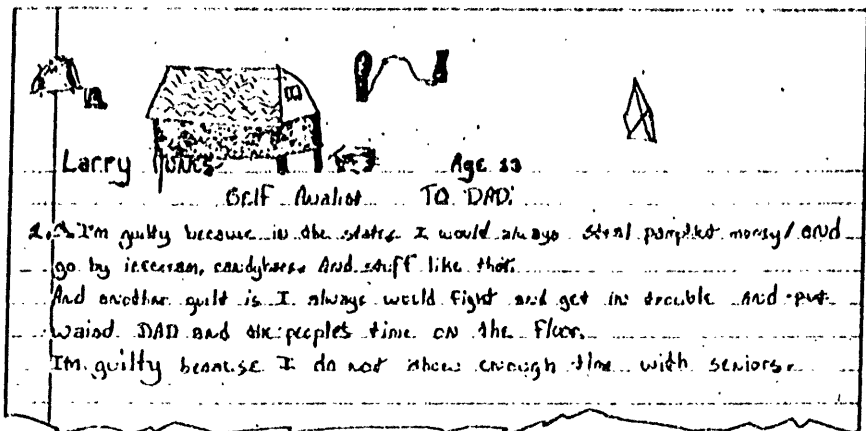 Larry Age 13
Self Analist TO DAD:
1. I'm guilty because in the states I would always steal pamplet money/and
go by icecream, candybars. And stuff like that.
And another guilt is I always would fight and get in trouble and put
DAD and the people's time on the floor.
I'm guilty because I do not show enough time with seniors.